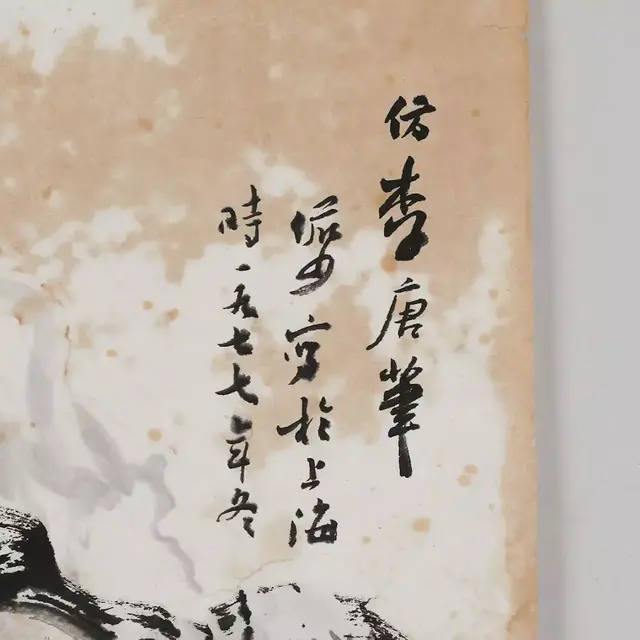 仿李唐筆
寫於上海
時一九七七年冬